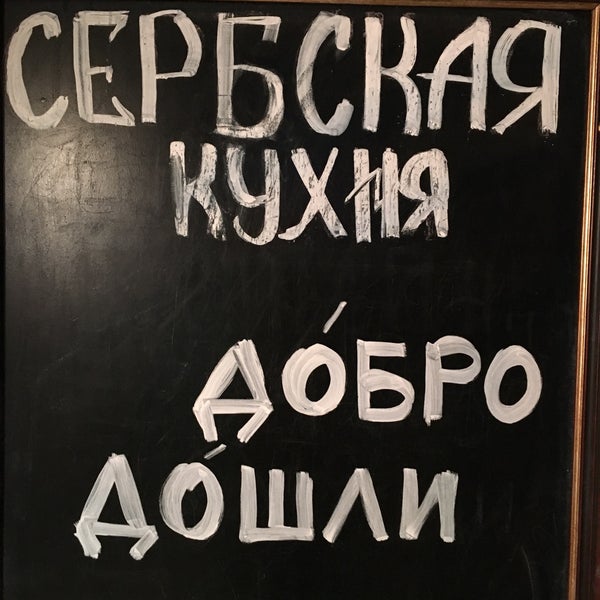 СЕРБСКАЯ
КУХНЯ
ДО́БРО
ДО́ШЛИ